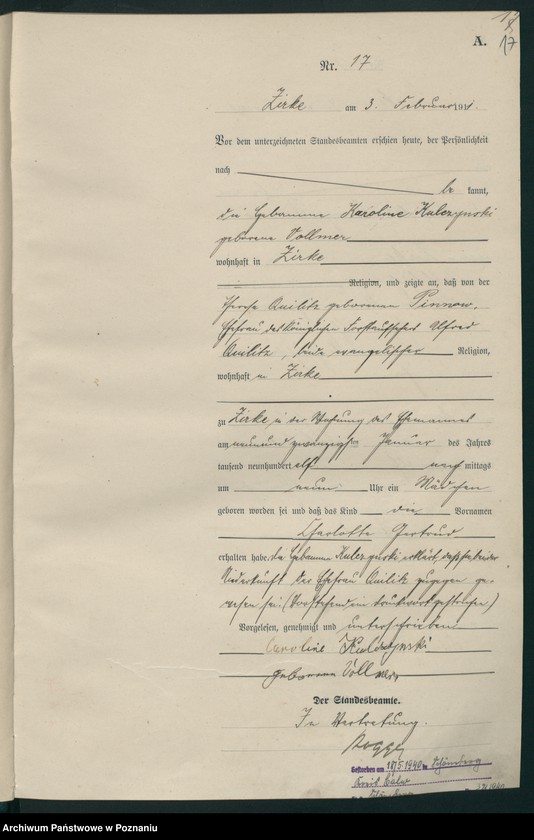 A.
17
Nr. 17
Zirke am 3. Februar 1911.
Vor dem unterzeichneten Standesbeamten erschien heute, der Persönlichkeit
nach
be kannt,
die Hebamme Karoline Kulczynski
geborene Vollmer
wohnhaft in Zirke
Religion, und zeigte an, daß von der
Quilitz geborenen Pinnow,
Ehefrau des Königlichen Forstaufsehers Alfred
Quilitz, beide evangelischer Religion,
wohnhaft in Zirke
zu Zirke in der Wohnung des Ehemannes
am neunundzwanzigsten Januar des Jahres
tausend neunhundert elf nach mittags
um neun Uhr ein Mädchen
geboren worden sei und daß das Kind die Vornamen
Charlotte Gertrud
erhalten habe. Die Hebamme Kulczynski erklärt, daß sie bei der
Niederkunft der Ehefrau Quilitz zugegen ge-
wesen sei. (Vorstehend ein Druckwort gestrichen)
Vorgelesen, genehmigt und unterschrieben
Caroline Kulczynski
geborene Vollmer
Der Standesbeamte.
In Vertretung.
Gestorben am 18.5.1940 in Schömberg
Kreis Calw
Schömberg
Archiwum Państwowe w Poznaniu